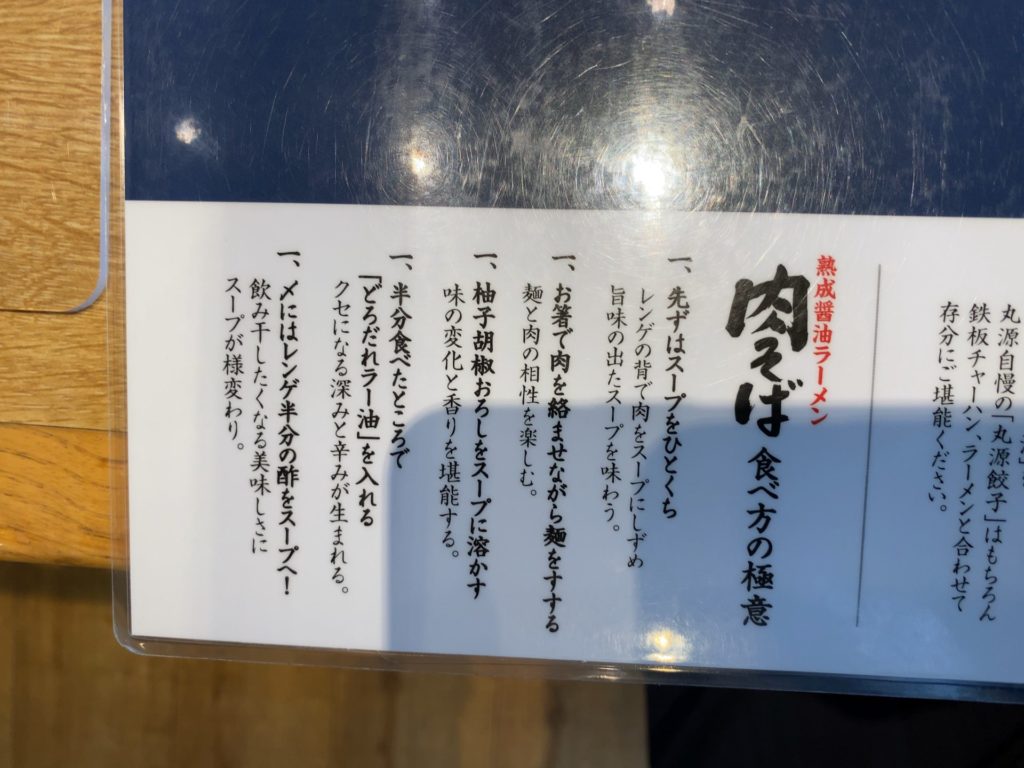 丸源自慢の「丸源餃子」はもちろん
鉄板チャーハン、ラーメンと合わせて
存分にご堪能ください。
熟成醤油ラーメン
肉そば 食べ方の極意
一、先ずはスープをひとくち
レンゲの背で肉をスープにしずめ
旨味の出たスープを味わう。
一、お箸で肉を絡ませながら麺をすする
麺と肉の相性を楽しむ。
一、柚子胡椒おろしをスープに溶かす
味の変化と香りを堪能する。
一、半分食べたところで
「どろだれラー油」を入れる
クセになる深みと辛みが生まれる。
一、〆にはレンゲ半分の酢をスープへ!
飲み干したくなる美味しさに
スープが様変わり。